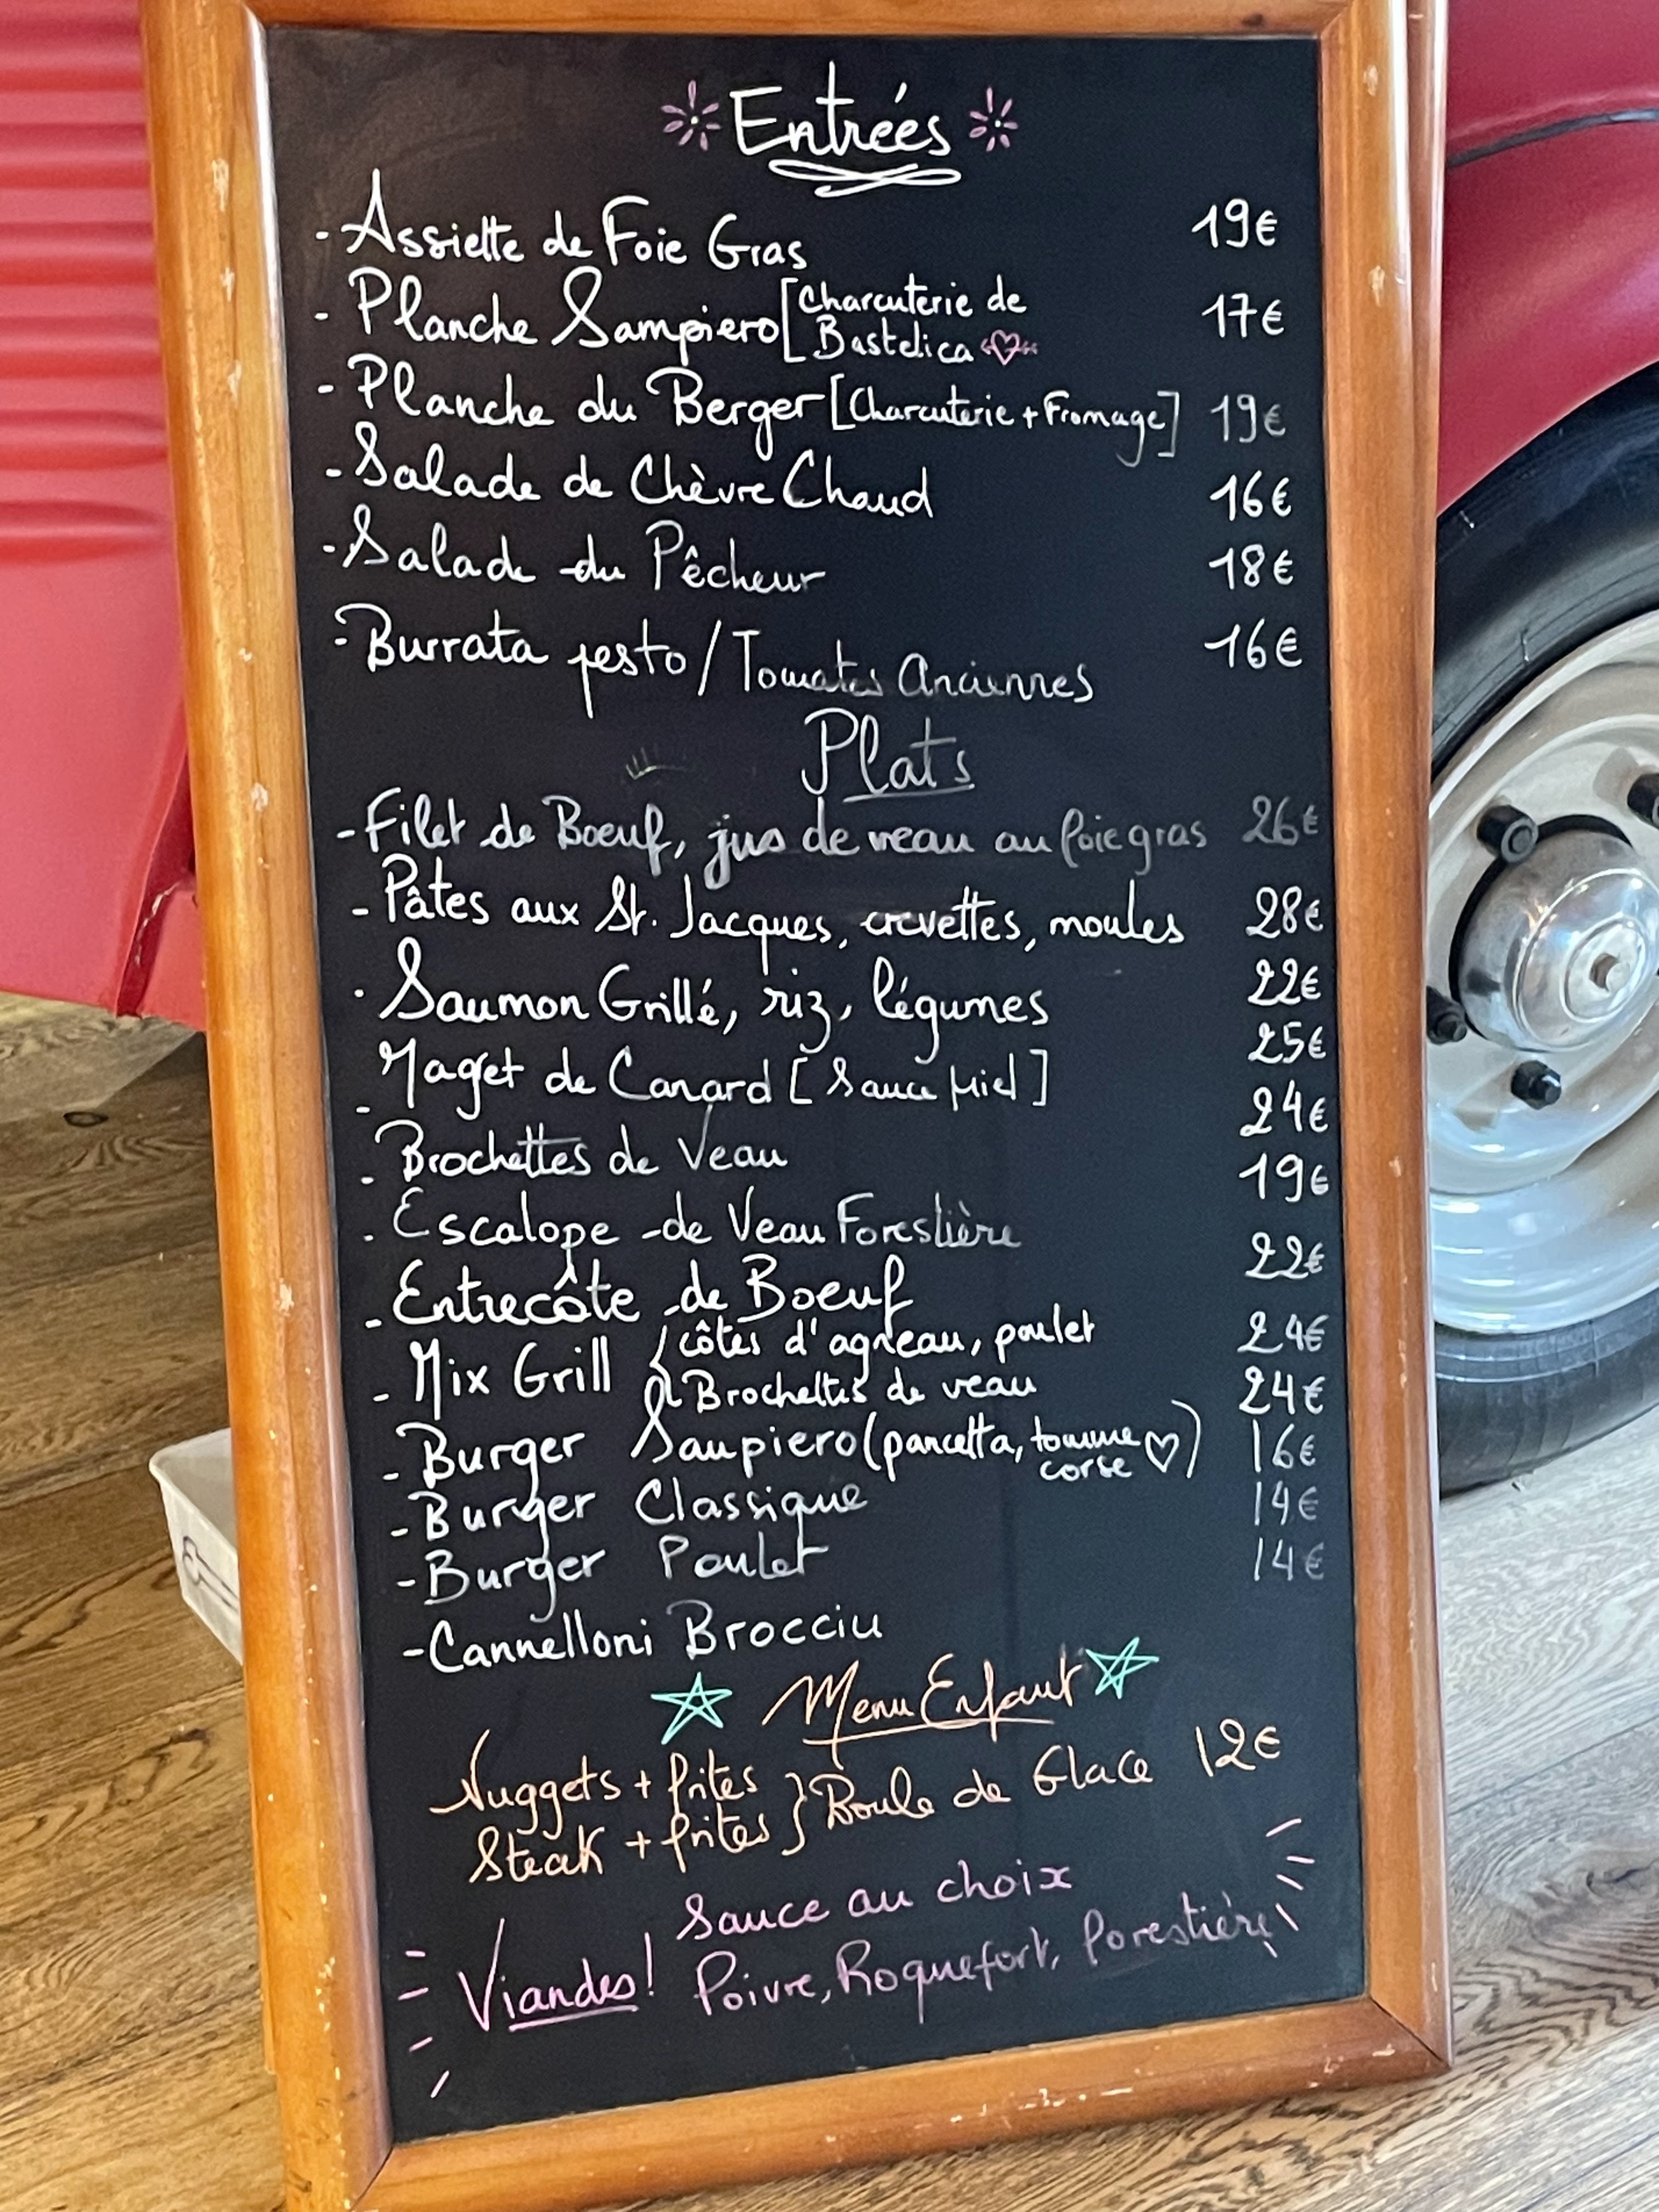 Entrées
- Assiette de Foie Gras 19€
- Planche Sampiero [Charcuterie de 17€
Bastelica
- Planche du Berger [Charcuterie + Fromage] 19€
- Salade de Chèvre Chaud 16€
- Salade du Pêcheur 18€
- Burrata pesto / Tomates Anciennes 16€
Plats
- Filet de Boeuf, jus de veau au foie gras 26€
- Pâtes aux St. Jacques, crevettes, moules 28€
- Saumon Grillé, riz, légumes 22€
- Magret de Canard [Sauce Miel] 25€
- Brochettes de Veau 24€
- Escalope de Veau Forestière 19€
- Entrecôte de Boeuf 22€
côtes d'agneau, poulet 24€
- Mix Grill { & Brochettes de veau 24€
- Burger Saupiero (pancetta, tomme ♡) 16€
corse
- Burger Classique 14€
- Burger Poulet 14€
- Cannelloni Brocciu
Menu Enfant
Nuggets + frites } Boule de Glace 12€
Steak + frites
Sauce au choix
Viandes! Poivre, Roquefort, forestière